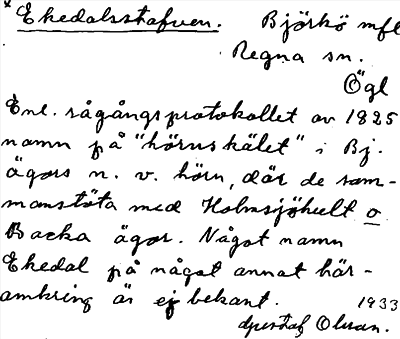 × Ekedalsstafven. Björkö mfl
Regna sn.
Ögl
Enl. rågångsprotokollet av 1825
namn på "hörnskälet" i Bj.
ägors n. v. hörn, där de sam-
manstöta med Holmsjöhult o
Backa ägor. Något namn
Ekedal på något annat här-
omkring är ej bekant. 1933
Gustaf Olsson.